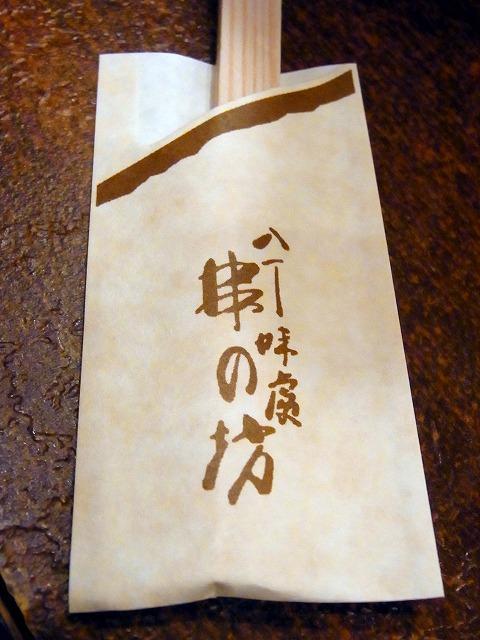 八丁味處
串の坊